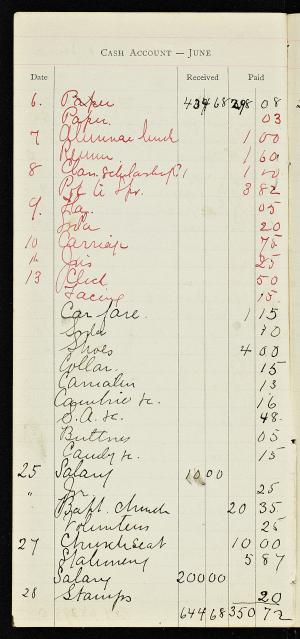 CASH ACCOUNT — JUNE
Date Received Paid
6. 434 68 298 08
Paper 03
7 Alumnae lunch 1 00
1 60
8 1 00
3 82
9. 05
Soda 20
10 Carriage 75
" 25
13 50
Facing 15
Car fare. 1 15
Soda 10
Shoes 4 00
Collar 15
Carnation 13
Cambric &c. 16
S.A. &c. 48.
Buttons 05
Candy &c. 15
25 Salary 10 00
" 25
Bapt. church 20 35
Volunteers 25
27 Church seat 10 00
Stationery 5 87
Salary 200 00
28 Stamps 20
644 68 350 72